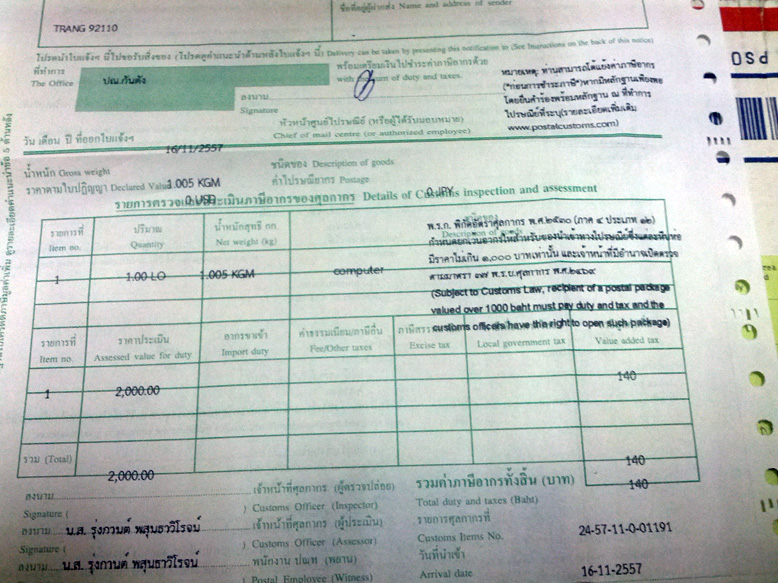 ชื่อที่อยู่ผู้ฝากส่ง Name and address of sender
TRANG 92110
โปรดนำใบแจ้งฯ นี้ไปขอรับสิ่งของ (โปรดดูคำแนะนำด้านหลังใบแจ้งฯ นี้) Delivery can be taken by presenting this notification to (See Instructions on the back of this notice)
ที่ทำการ
The Office
ปณ.กันตัง
พร้อมเตรียมเงินไปชำระค่าภาษีอากรด้วย
with sum of duty and taxes.
ลงนาม
Signature
หัวหน้าศูนย์ไปรษณีย์ (หรือผู้ได้รับมอบหมาย)
Chief of mail centre (or authorized employee)
หมายเหตุ: ท่านสามารถโต้แย้งค่าภาษีอากร
("ก่อนการชำระภาษี")หากมีหลักฐานเพียงพอ
โดยยื่นคำร้องพร้อมหลักฐาน ณ ที่ทำการ
ไปรษณีย์ที่ระบุ(รายละเอียดเพิ่มเติม
www.postalcustoms.com)
PSO
วัน เดือน ปี ที่ออกใบแจ้งฯ
16/11/2557
น้ำหนัก Gross weight
1.005 KGM
ชนิดของ Description of goods
ราคาตามใบปฏิญญา Declared Value
0 USD
ค่าไปรษณียากร Postage
0 JPY
รายการตรวจและประเมินภาษีอากรของศุลกากร Details of Customs inspection and assessment
รายการที่
Item no.
ปริมาณ
Quantity
น้ำหนักสุทธิ กก.
Net weight (kg)
พ.ร.ก. พิกัดอัตราศุลกากร พ.ศ.๒๕๓๐ (ภาค ๔ ประเภท ๑๒)
กำหนดยกเว้นอากรให้สำหรับของนำเข้าทางไปรษณีย์ซึ่งแต่ละหีบห่อ
มีราคาไม่เกิน ๑,๐๐๐ บาทเท่านั้น และเจ้าหน้าที่มีอำนาจเปิดตรวจ
ตามมาตรา ๑๗ พ.ร.บ.ศุลกากร พ.ศ.๒๔๖๙
(Subject to Customs Law, recipient of a postal package
valued over 1000 baht must pay duty and tax and the
customs officers have the right to open such package)
1
1.00 LO
1.005 KGM
computer
รายการที่
Item no.
ราคาประเมิน
Assessed value for duty
อากรขาเข้า
Import duty
ค่าธรรมเนียม/ภาษีอื่น
Fee/Other taxes
Excise tax
Local government tax
Value added tax
1
2,000.00
140
รวม (Total)
2,000.00
140
ลงนาม
เจ้าหน้าที่ศุลกากร (ผู้ตรวจปล่อย)
Signature (
) Customs Officer (Inspector)
รวมค่าภาษีอากรทั้งสิ้น (บาท)
Total duty and taxes (Baht)
140
ลงนาม
น.ส. รุ่งกานต์ พสุนธาวิโรจน์
เจ้าหน้าที่ศุลกากร (ผู้ประเมิน)
Signature (
) Customs Officer (Assessor)
รายการศุลกากรที่
Customs Items No.
24-57-11-0-01191
ลงนาม
น.ส. รุ่งกานต์ พสุนธาวิโรจน์
พนักงาน ปณท (พยาน)
Signature (
) Postal Employee (Witness)
วันที่นำเข้า
Arrival date
16-11-2557